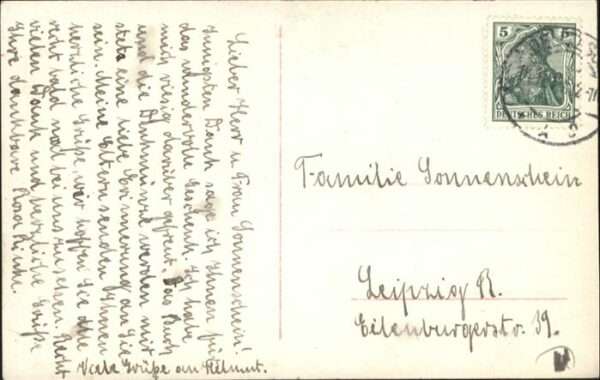 Lieber Herr u. Frau Sonnenschein!
Innigsten Dank sage ich Ihnen für
das wundervolle Geschenk. Ich habe
mich riesig darüber gefreut. Das Buch
und die Denkmünze werden mir
stets eine liebe Erinnerung an Sie
sein. Meine Eltern senden Ihnen
herzliche Grüße, wir hoffen Sie doch
recht bald mal bei uns zu sehen. Recht
vielen Dank und herzliche Grüße
Ihre dankbare Rosa
Viele Grüße an Helmut.
5 5
DEUTSCHES REICH
Familie Sonnenschein
Leipzig R.
Eilenburgerstr. 39.